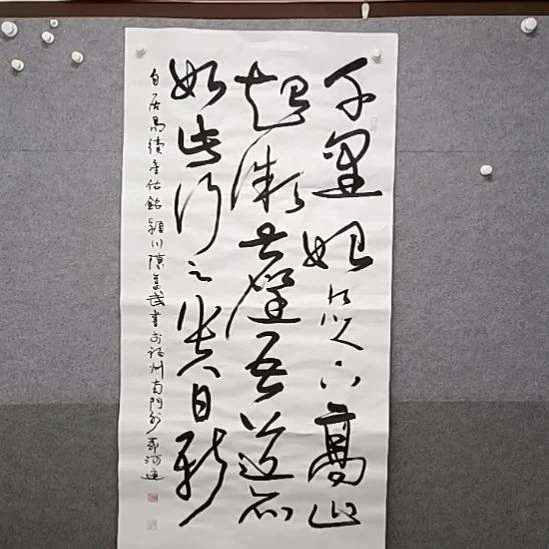 千里始足下高山
起微塵吾道亦
如此行之貴日新
白居易續座佑銘潁川陳武書於福州南門外河邊